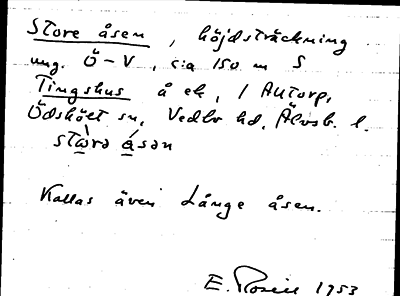 Store åsen, höjdsträckning
ung. Ö-V, c:a 150 m S
Tingshus å ek, 1 Autorp,
Ödskölt sn, Vedbo hd, Älvsb. l.
stɷ̀rə åsən
Kallas även Långe åsen.
E. Rosell 1953